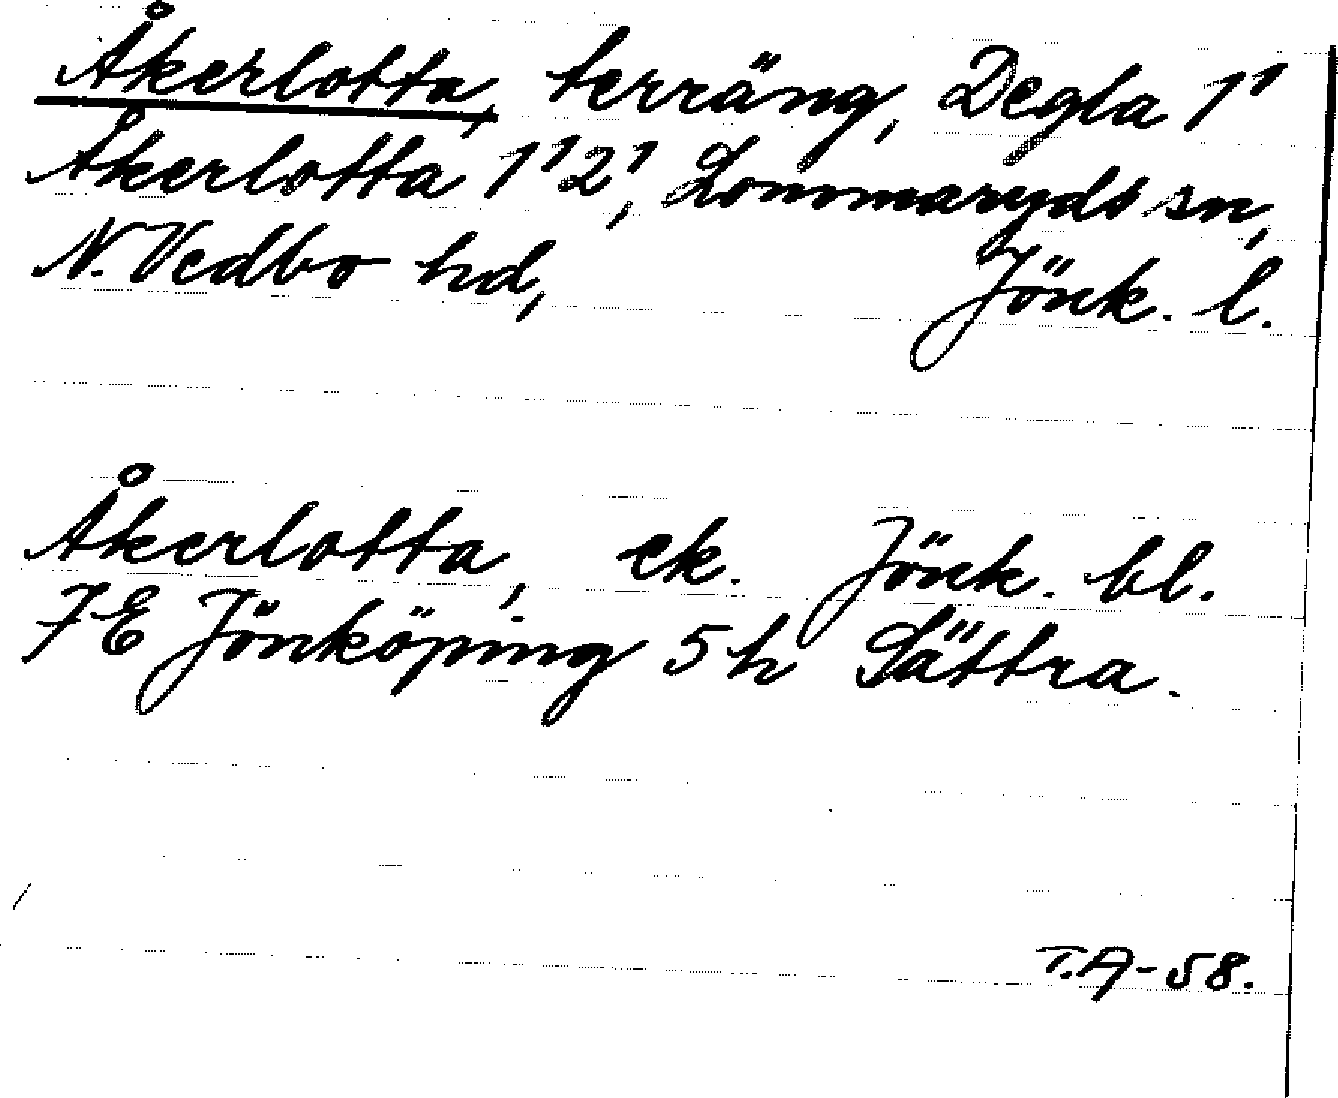 Åkerlotta, terräng, Degla 1¹
Åkerlotta 1¹2¹, Lommaryds sn,
N. Vedbo hd, Jönk. l.
Åkerlotta, ek. Jönk. bl.
7E Jönköping 5h Sättra.
T.A-58.